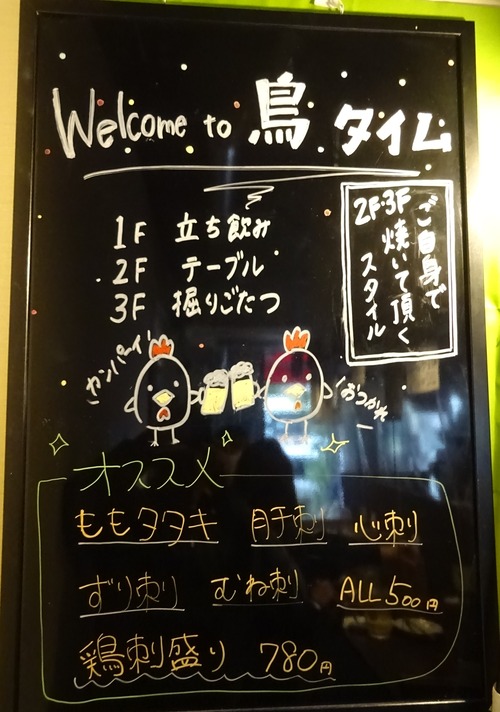 Welcome to 鳥 タイム
1F 立ち飲み
2F テーブル
3F 掘りごたつ
2F・3F
ご自身で
焼いて頂く
スタイル
カンパーイ!
おつかれ
オススメ
ももタタキ 肝刺 心刺
ずり刺し むね刺 ALL500円
鶏刺盛り 780円